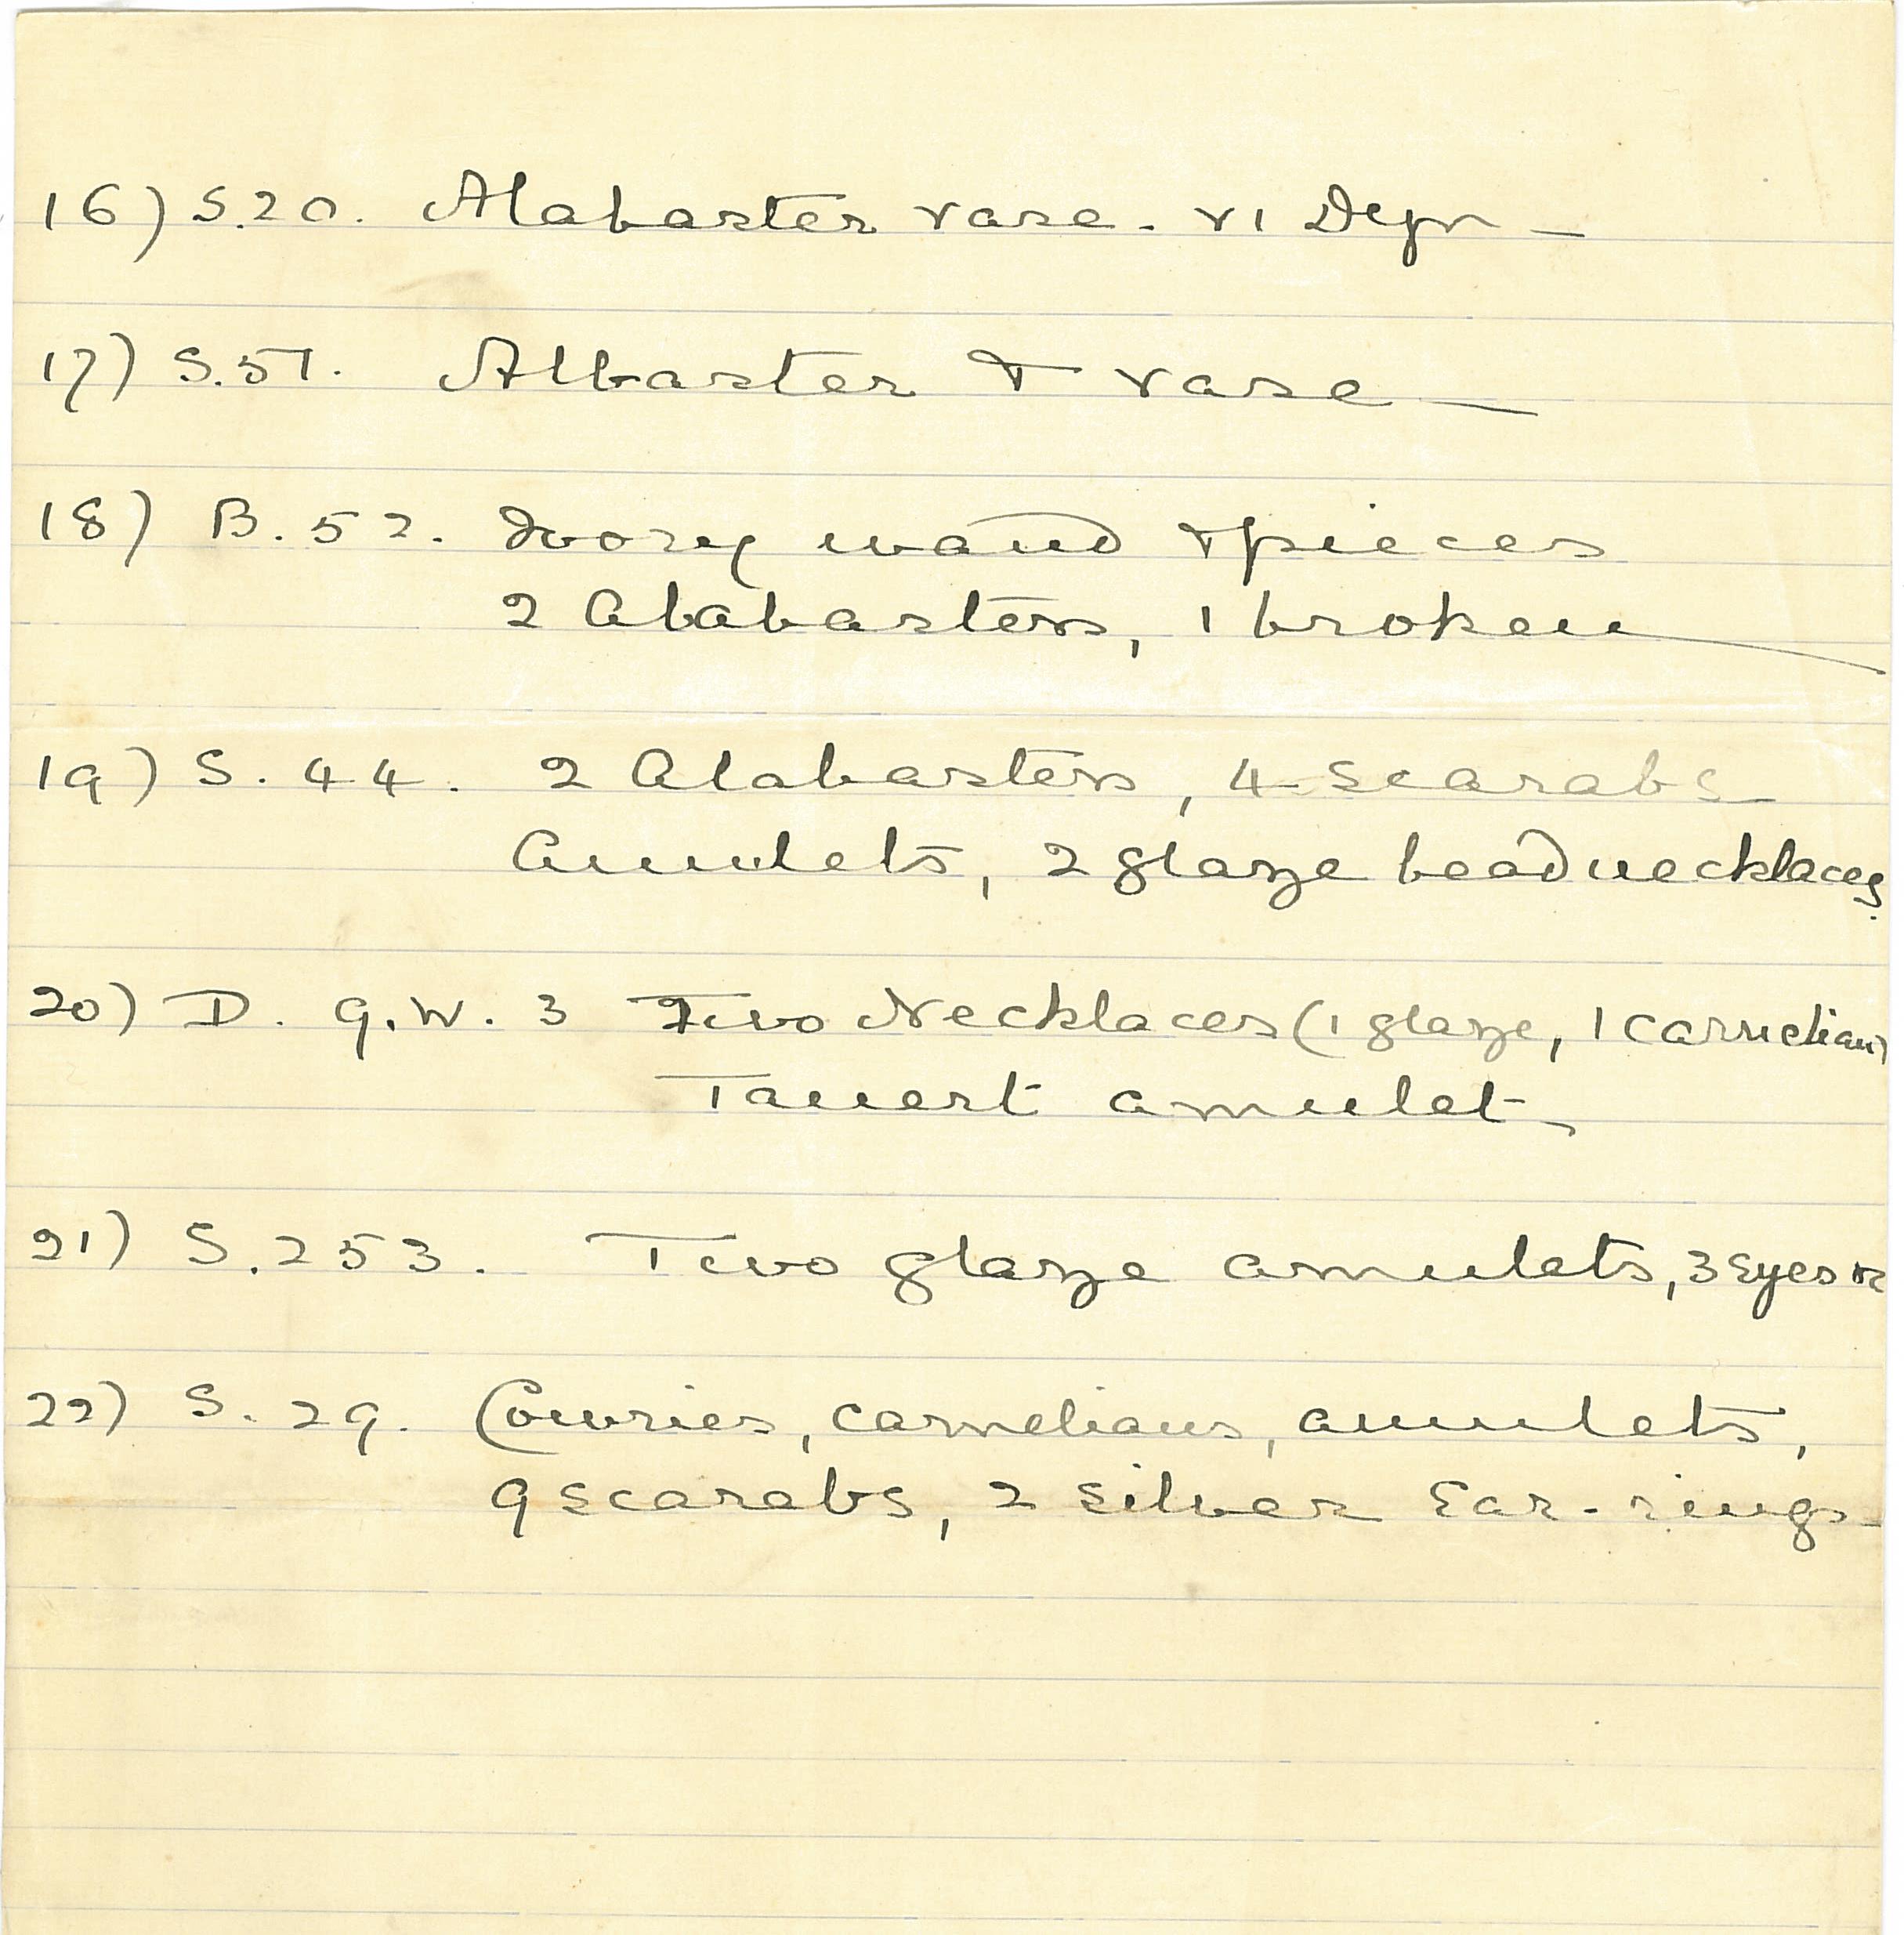 16) S.20. Alabaster vase. VI Dyn –
17) S.51. Albaster T vase –
18) B.52. Ivory wand & pieces
2 Alabasters, 1 broken
19) S.44. 2 Alabasters, 4 scarabs
Amulets, 2 glaze bead necklaces.
20) D. G.W. 3 Two Necklaces (1 glaze, 1 carnelian)
Tauert amulet
21) S.253. Two glaze amulets, 3 Eyes &c
22) S.29. Cowries, carnelians, amulets,
9 scarabs, 2 silver Ear-rings –